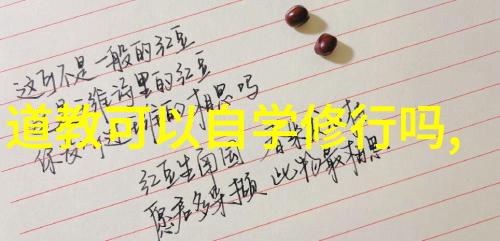 这可不是一般的红豆
是王维诗里的红豆
相思吗
道教可以自学修行吗,
红豆生南国 春来
愿君多采撷 此物最相思